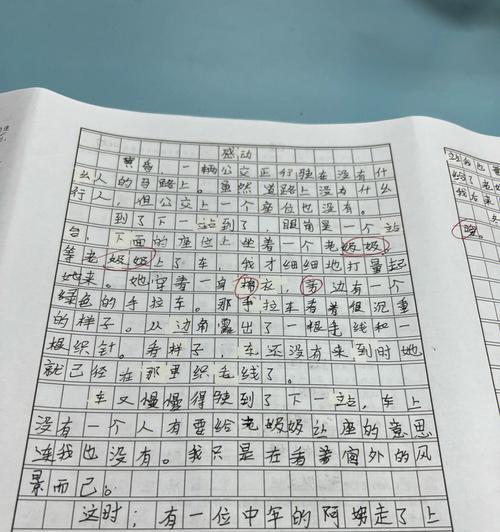 感动
黄昏，一辆公交正行驶在没有什
么人的马路上。虽然道路上没有什么
行人，但公交上一个座位也没有。
到了下一站到了，眼前是一个站
台，下面的座位上坐着一个老奶奶。
等老奶奶上了车，我才细细地打量起
她来。她穿着一身棉衣，旁边有一个
绿色的手拉车。那手拉车看着很沉重
的样子。从边角露出了一根毛线和一
根织针。看样子，车还没有来到时她
就已经在那里织毛线了。
车又慢慢得驶到了下一站，车上
没有一个人有要给老奶奶让座的意思
连我也没有。我只是在看着窗外的风
景而已。
这时；有一位中年的阿姨走了上
晚。